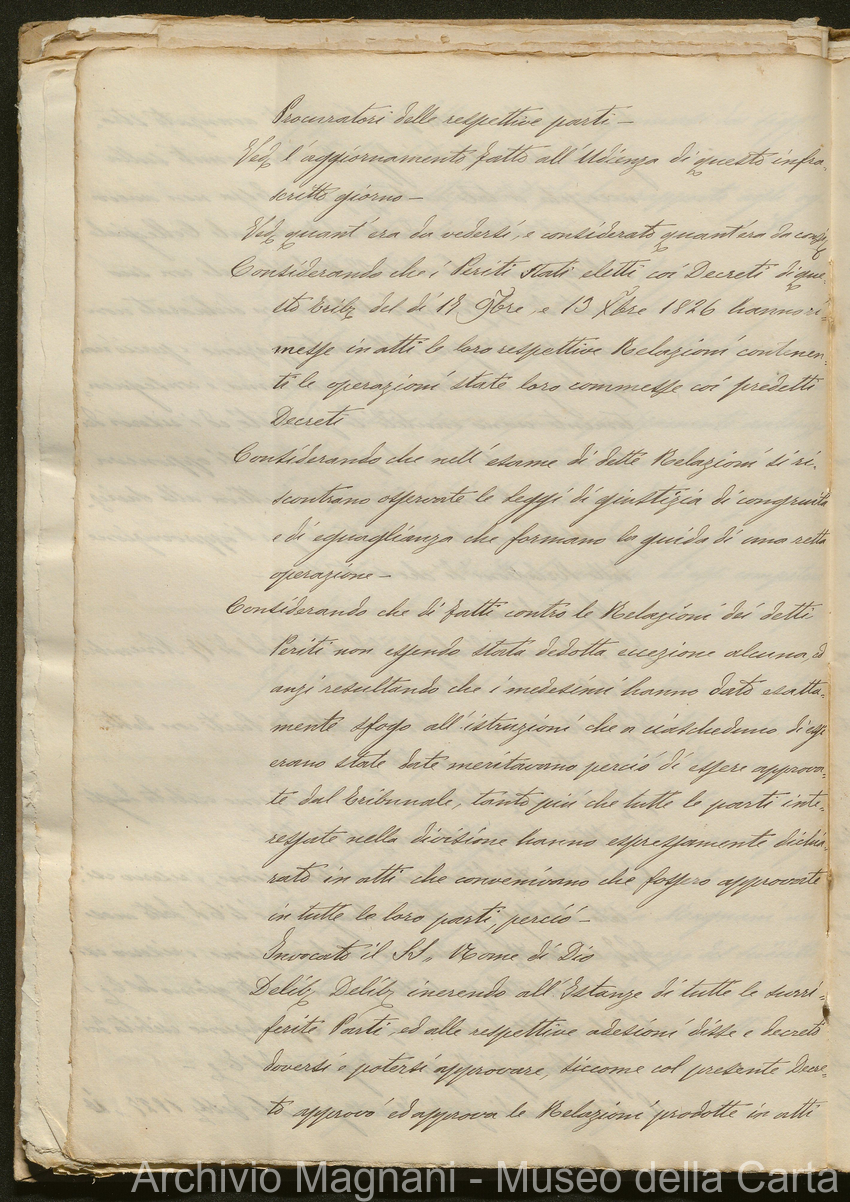 Procuratori delle respettive parti —
Ved. l'aggiornamento fatto all'Udienza di questo infra-
scritto giorno —
Ved. quant'era da vedersi, e considerato quant'era da consid.
Considerando che i Periti stati eletti coi Decreti di que-
sto Tribl. del dì 18 9bre, e 13 Xbre 1826 hanno ri-
messe in atti le loro respettive Relazioni contenen-
ti le operazioni state loro commesse coi predetti
Decreti
Considerando che nell'esame di dette Relazioni si ri-
scontrano osservate le Leggi di giustizia di congruità
e di eguaglianza che formano la guida di una retta
operazione —
Considerando che di fatti contro le Relazioni dei detti
Periti non essendo stata dedotta eccezione alcuna, ed
anzi resultando che i medesimi hanno dato esatta-
mente sfogo all'istruzioni che a ciascheduno di essi
erano state date meritavano perciò di essere approva-
te dal Tribunale, tanto più che tutte le parti inte-
ressate nella divisione hanno espressamente dichia-
rato in atti che convenivano che fossero approvate
in tutte le loro parti, perciò —
Invocato il SS. Nome di Dio
Delib. Delib. inerendo all'Istanze di tutte le surri-
ferite Parti, ed alle respettive adesioni disse e decretò
doversi e potersi approvare, siccome col presente Decre-
to approvò ed approva le Relazioni prodotte in atti
Archivio Magnani - Museo della Carta